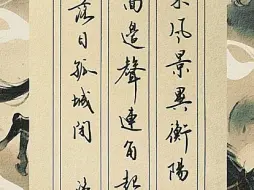 風景異衡陽
面邊聲連角起
落日孤城閉